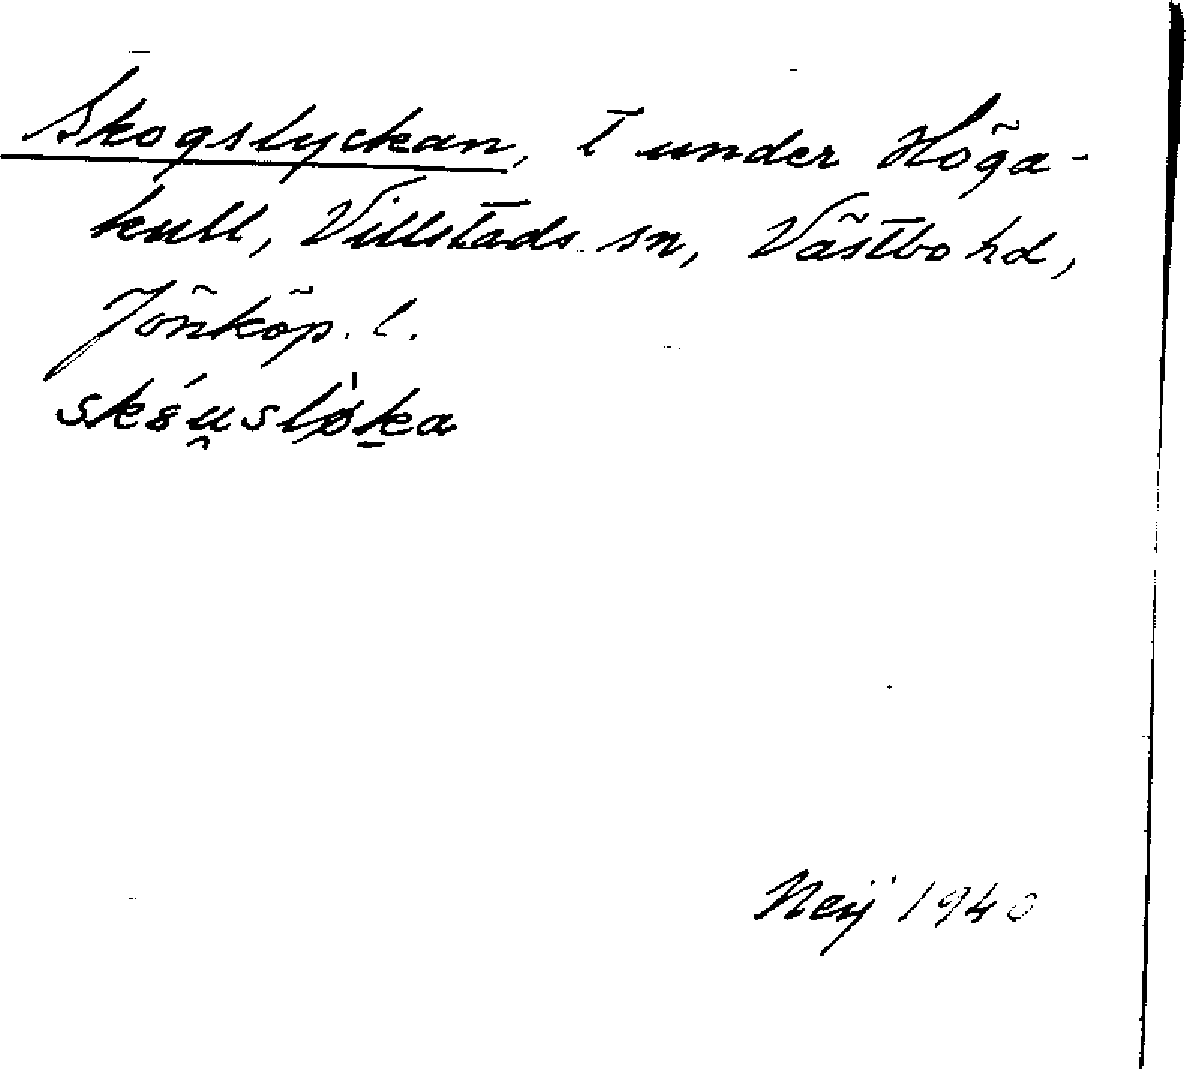 Skogslyckan, t under Höga-
kull, Villstads sn, Västbo hd,
Jönköp. l.
Neij 1940